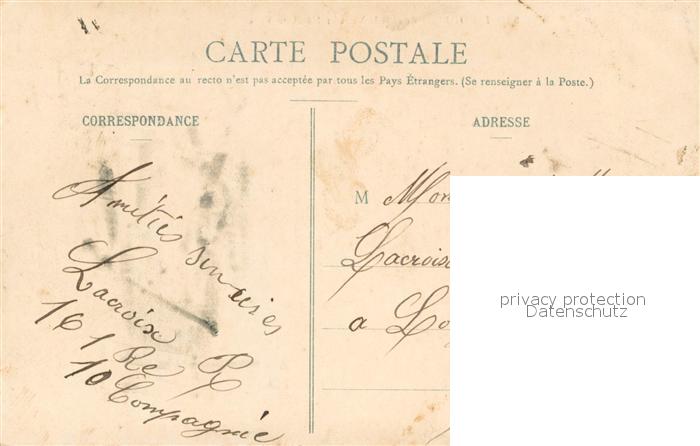 CARTE POSTALE
La Correspondance au recto n'est pas acceptée par tous les Pays Étrangers. (Se renseigner à la Poste.)
CORRESPONDANCE
Amitiés
Lacroix R
16 1 Re
10 Compagnie
ADRESSE
M Mon
Lacroix
a Lo
privacy protection
Datenschutz